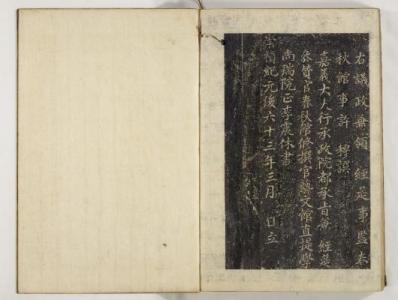 右議政兼領 經筵事監春
秋館事許 穆譔
嘉義大夫行承政院都承旨兼 經筵
參贊官春秋館修撰官藝文館直提學
尚瑞院正李震休書
崇禎紀元後六十三年三月 日立